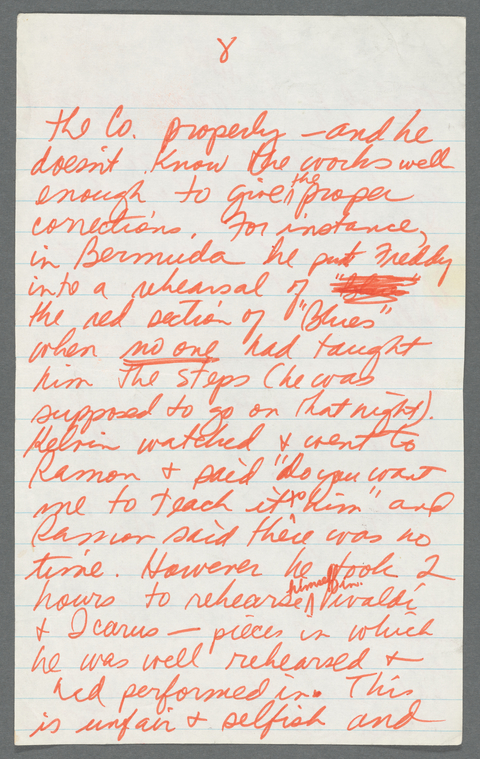 8
the Co. properly – and he
doesn't know the works well
enough to give the proper
corrections. For instance,
in Bermuda he put Freddy
into a rehearsal of
the red section of "Blues"
when no one had taught
him the steps (he was
supposed to go on that night).
Kelvin watched & went to
Ramon & said "do you want
me to teach it to him" and
Ramon said there was no
time. However he took 2
hours to rehearse himself in Vivaldi
& Icarus – pieces in which
he was well rehearsed &
had performed in. This
is unfair & selfish and